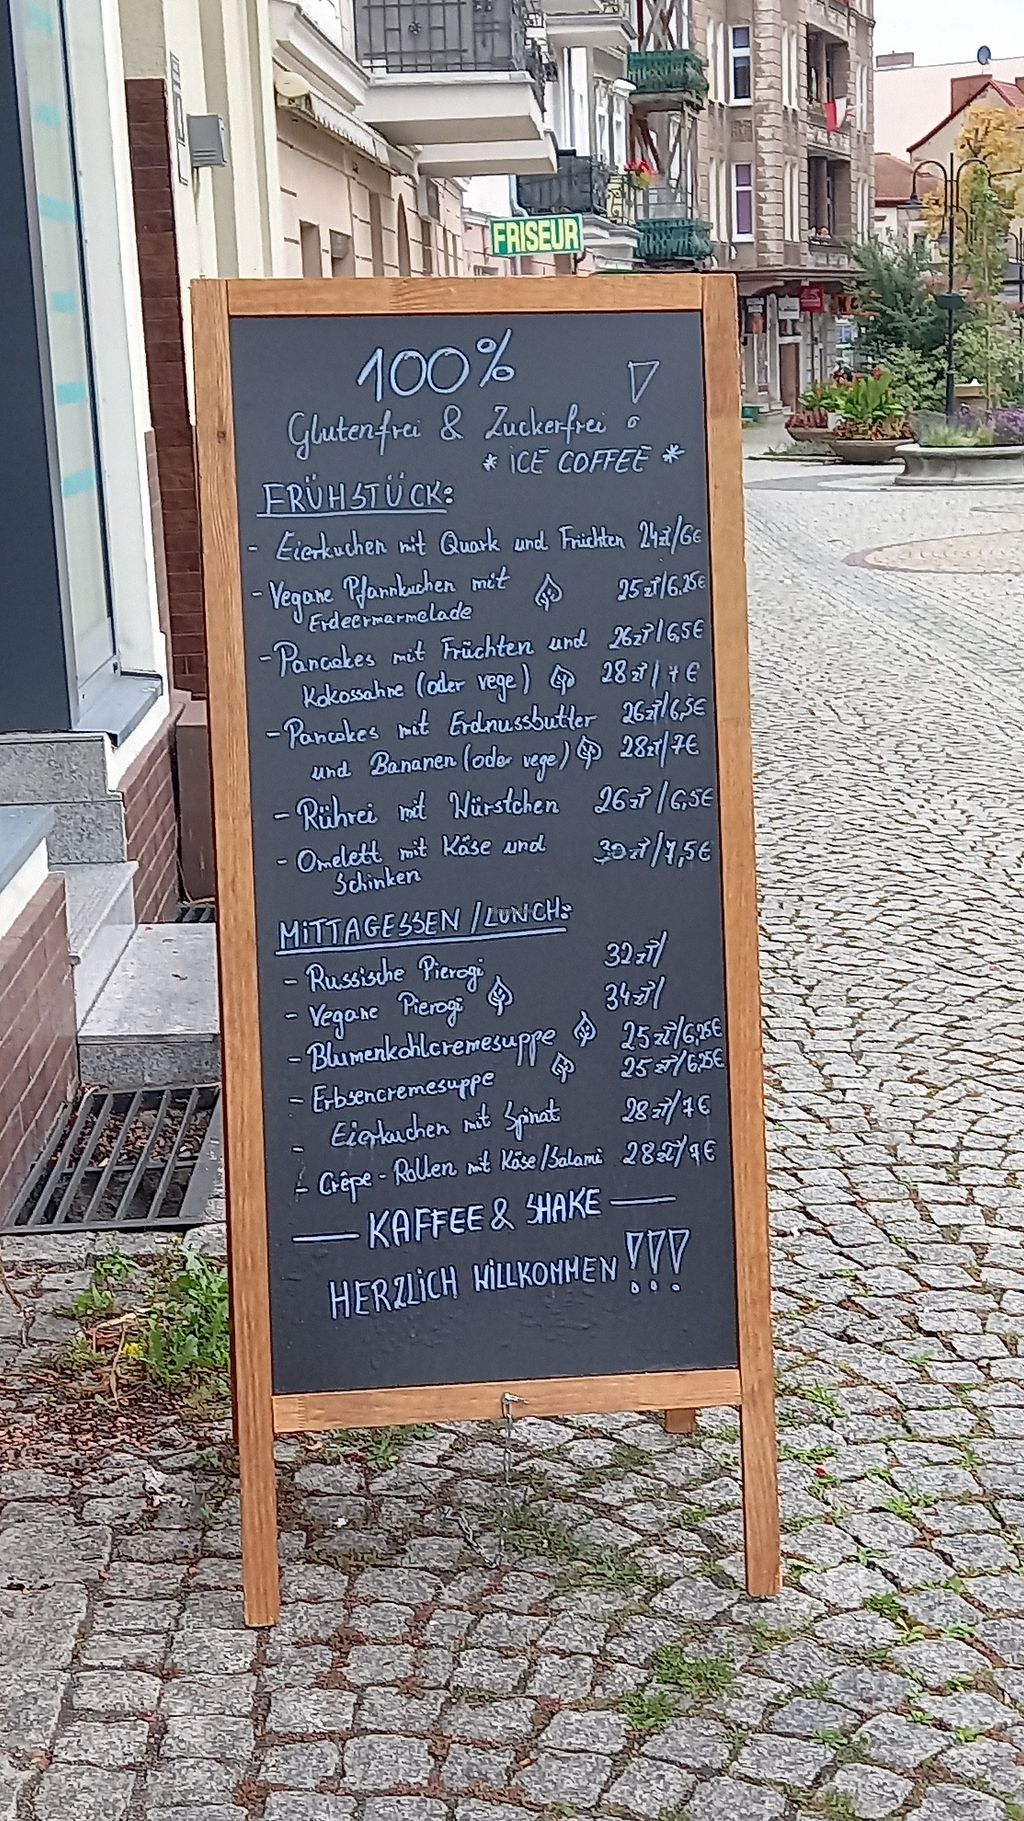 FRISEUR
100%
Glutenfrei & Zuckerfrei !
* ICE COFFEE *
FRÜHSTÜCK:
- Eierkuchen mit Quark und Früchten 24zł/6€
- Vegane Pfannkuchen mit 25zł/6,25€
Erdeermarmelade
- Pancakes mit Früchten und 26zł/6,5€
Kokossahne (oder vege) 28zł/7€
- Pancakes mit Erdnussbutter 26zł/6,5€
und Bananen (oder vege) 28zł/7€
- Rührei mit Würstchen 26zł/6,5€
- Omelett mit Käse und 30zł/7,5€
Schinken
MITTAGESSEN/LUNCH:
- Russische Pierogi 32zł/
- Vegane Pierogi 34zł/
- Blumenkohlcremesuppe 25zł/6,25€
- Erbsencremesuppe 25zł/6,25€
- Eierkuchen mit Spinat 28zł/7€
- Crêpe-Rollen mit Käse/Salami 28zł/7€
— KAFFEE & SHAKE —
HERZLICH WILLKOMMEN !!!